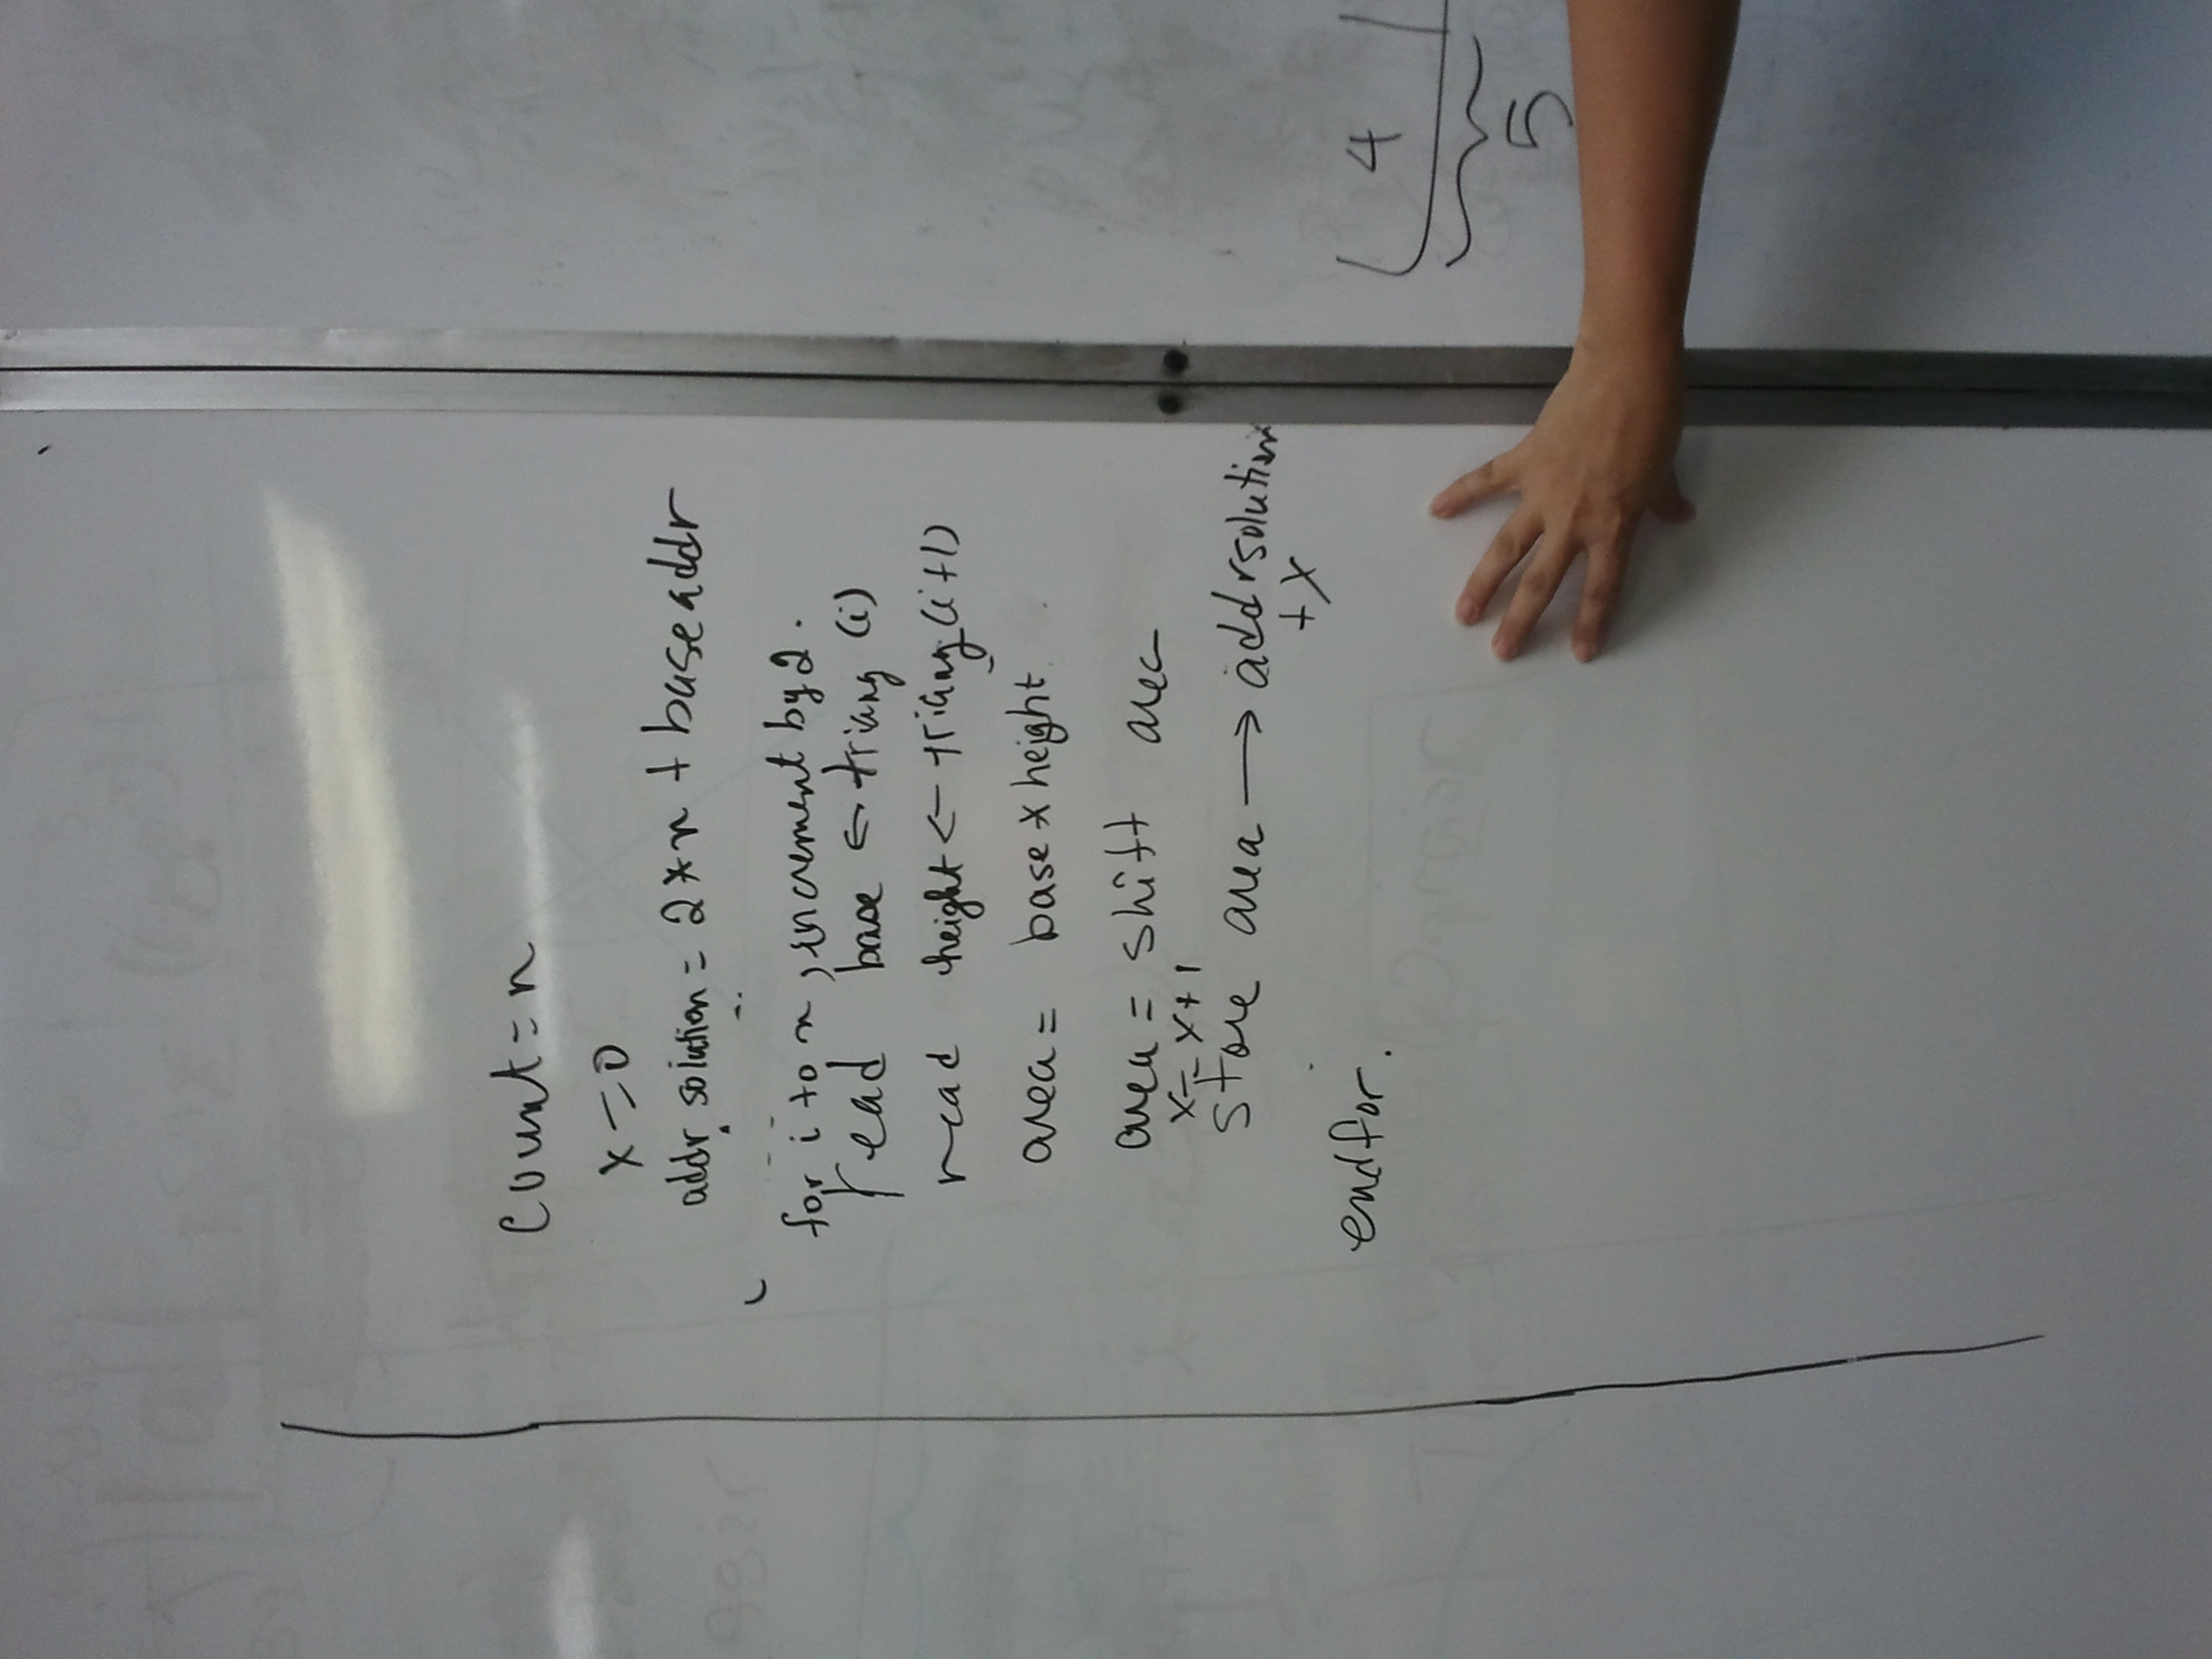 Count = n
x = 0
addr solution = 2 * n + base addr
for i to n, increment by 2.
read base ← triang (i)
read height ← triang (i+1)
area = base x height
area = shift area
x = x + 1
store area → addrsolution
+ x
endfor.
4
5